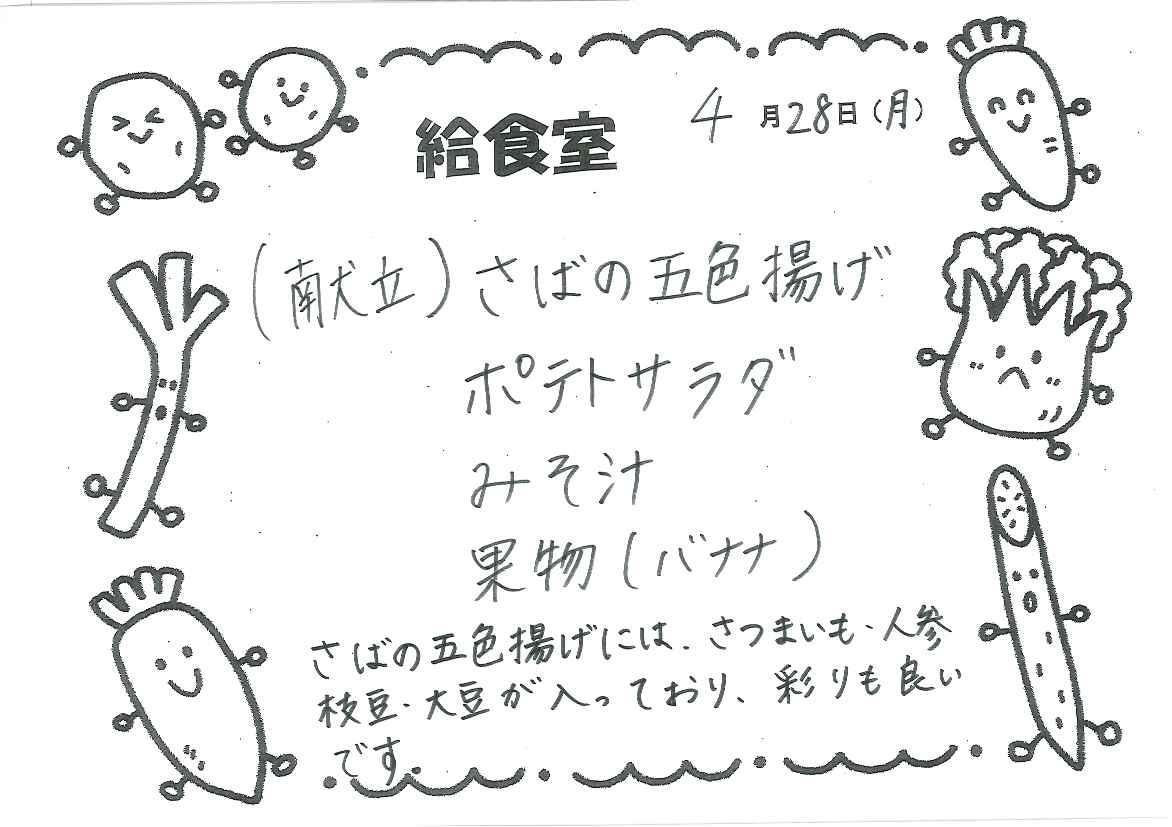 給食室 4月28日(月)
(献立)さばの五色揚げ
ポテトサラダ
みそ汁
果物(バナナ)
さばの五色揚げには、さつまいも・人参
枝豆・大豆が入っており、彩りも良い
です。